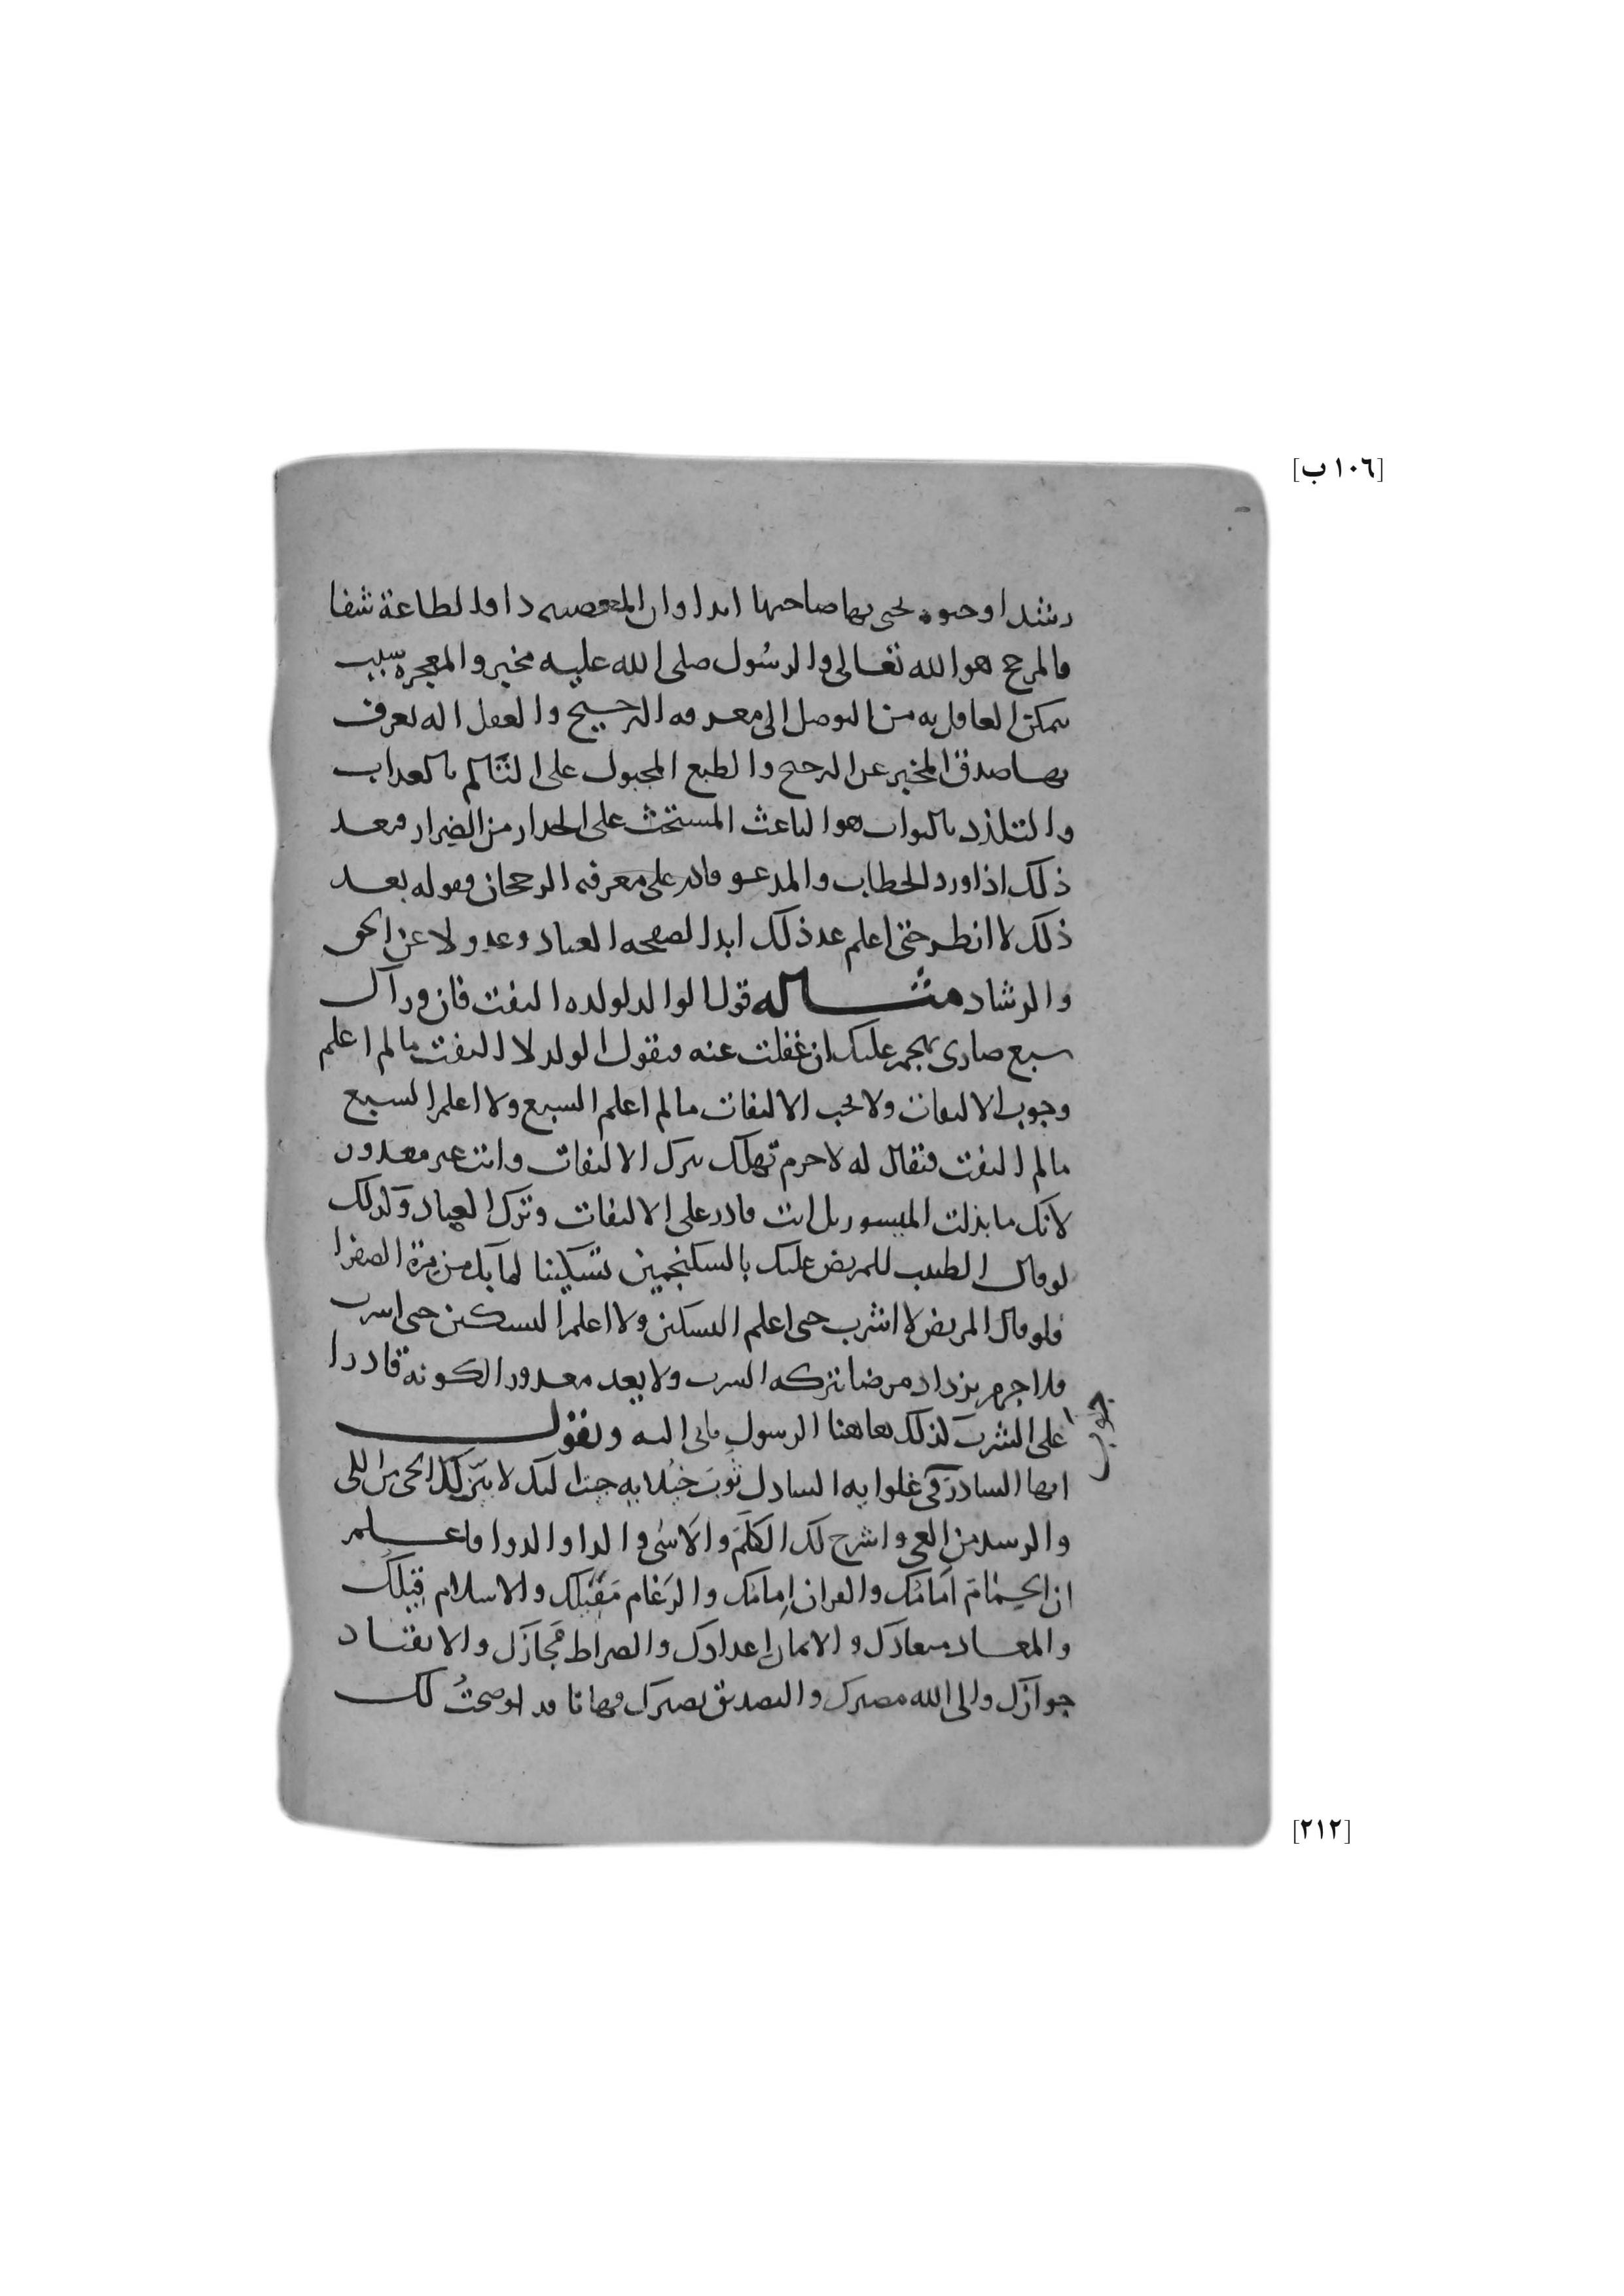 [١٠٦ ب]
رشدا وحيوة يحيى بها صاحبها ابدا وان المعصية دا والطاعة شفا
فالمرجح هو الله تعالى والرسول صلى الله عليه مخبر والمعجزة سبب
يمكن العاقل به من التوصل الى معرفة الترجيح والعقل اله يعرف
بها صدق المخبر عن الترجيح والطبع المجبول على التألم بالعذاب
والتلذذ بالثواب هو الباعث المستحث على الحذار من الضرار فعند
ذلك اذا ورد الخطاب والمدعو قادر على معرفة الرجحان فقوله بعد
ذلك لا انظر حتى اعلم عد ذلك ابدا لصفحة العناد وعدولا عن الحق
والرشاد مثاله قول الوالد لولده التفت فان وراك
سبع ضاري يهجم عليك ان غفلت عنه فيقول الولد لا التفت ما لم اعلم
وجوب الالتفات ولا يجب الالتفات ما لم اعلم السبع ولا اعلم السبع
ما لم التفت فيقال له لا جرم تهلك بترك الالتفات وانت غير معذور
لانك ما بذلت الميسور بل انت قادر على الالتفات وترك العناد وكذلك
لو قال الطبيب للمريض عليك بالسكنجبين تسكينا لما بك من مرة الصفرا
فلو قال المريض لا اشرب حتى اعلم التسكين ولا اعلم التسكين حتى اشرب
فلا جرم يزداد مرضا بتركه الشرب ولا يعد معذورا لكونه قادرا
على الشرب كذلك هاهنا الرسول ياتي اليه ويقول
ايها السادر في غلوايه السادل ثوب خيلايه جيت اليك لابين لك الحي من اللي
والرشد من الغي واشرح لك الكلم والاسى والدا والدوا فاعلم
ان الحمام امامك والقران امامك والرغام مقيلك والاسلام قبلك
والمعاد ميعادك والايمان اعدادك والصراط مجازك والانقياد
جوازك والى الله مصيرك والتصديق نصيرك فها انا قد اوضحت لك
[٢١٢]